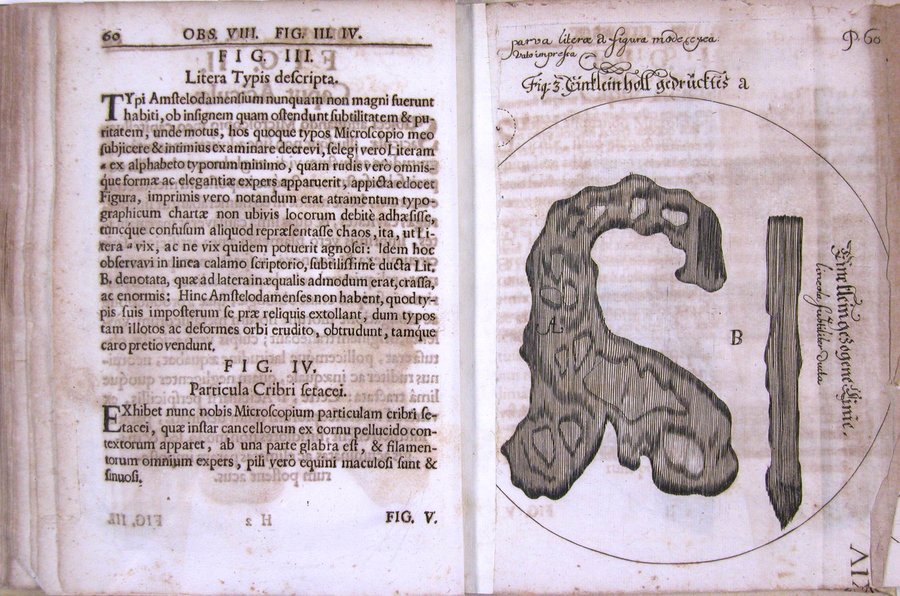 60 OBS. VIII. FIG. III. IV.
FIG. III.
Litera Typis descripta.
TYpi Amstelodamensium nunquam non magni fuerunt
habiti, ob insignem quam ostendunt subtilitatem & pu-
ritatem, unde motus, hos quoque typos Microscopio meo
subjicere & intimius examinare decrevi, selegi vero Literam
a ex alphabeto typorum minimo, quam rudis vero omnis-
que formæ ac elegantiæ expers apparuerit, appicta edocet
Figura, imprimis vero notandum erat atramentum typo-
graphicum chartæ non ubivis locorum debitè adhæsisse,
tuncque confusum aliquod repræsentasse chaos, ita, ut Li-
tera a vix, ac ne vix quidem potuerit agnosci: Idem hoc
observavi in linea calamo scriptorio, subtilissimè ducta Lit,
B, denotata, quæ ad latera inæqualis admodum erat, crassa,
ac enormis: Hinc Amstelodamenses non habent, quod ty-
pis suis imposterum se præ reliquis extollant, dum typos
tam illotos ac deformes orbi erudito, obtrudunt, tamque
caro pretio vendunt.
FIG. IV.
Particula Cribri setacei.
EXhibet nunc nobis Microscopium particulam cribri se-
tacei, quæ instar cancellorum ex cornu pellucido con-
textorum apparet, ab una parte glabra est, & filamen-
torum omnium expers, pili vero equini maculosi sunt &
sinuosi.
H 2 FIG. V.
parva literæ a figura mode
vato impressa
P 60
Fig: 3. Ein klein holl gedrücktes a
A
B
Eine klein gezogene Linie.
lineola subtiliter ducta
VIV